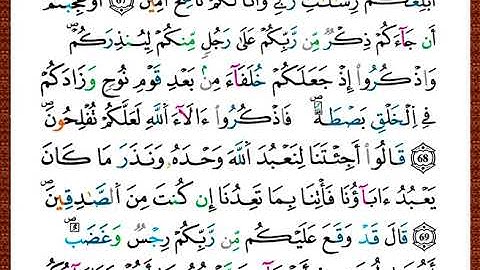 أُبَلِّغُكُمْ رِسَٰلَٰتِ رَبِّے وَأَنَا۠ لَكُمْ نَاصِحٌ أَمِينٌ ۖ 67 أَوَعَجِبْتُمُۥٓ
أَن جَآءَكُمْ ذِكْرٌ مِّن رَّبِّكُمْ عَلَىٰ رَجُلٍ مِّنكُمْ لِيُنذِرَكُمْ ۖ
وَاذْكُرُوٓا۟ إِذْ جَعَلَكُمْ خُلَفَآءَ مِنۢ بَعْدِ قَوْمِ نُوحٍ وَزَادَكُمْ
فِے اِ۬لْخَلْقِ بَصْۜطَةً ۖ فَاذْكُرُوٓا۟ ءَالَآءَ اَ۬للَّهِ لَعَلَّكُمْ تُفْلِحُونَ ۖ
68 قَالُوٓا۟ أَجِئْتَنَا لِنَعْبُدَ اَ۬للَّهَ وَحْدَهُۥ وَنَذَرَ مَا كَانَ
يَعْبُدُ ءَابَآؤُنَا فَأْتِنَا بِمَا تَعِدُنَآ إِن كُنتَ مِنَ اَ۬لصَّٰدِقِينَ ۖ
69 قَالَ قَدْ وَقَعَ عَلَيْكُم مِّن رَّبِّكُمْ رِجْسٌ وَغَضَبٌ ۖ